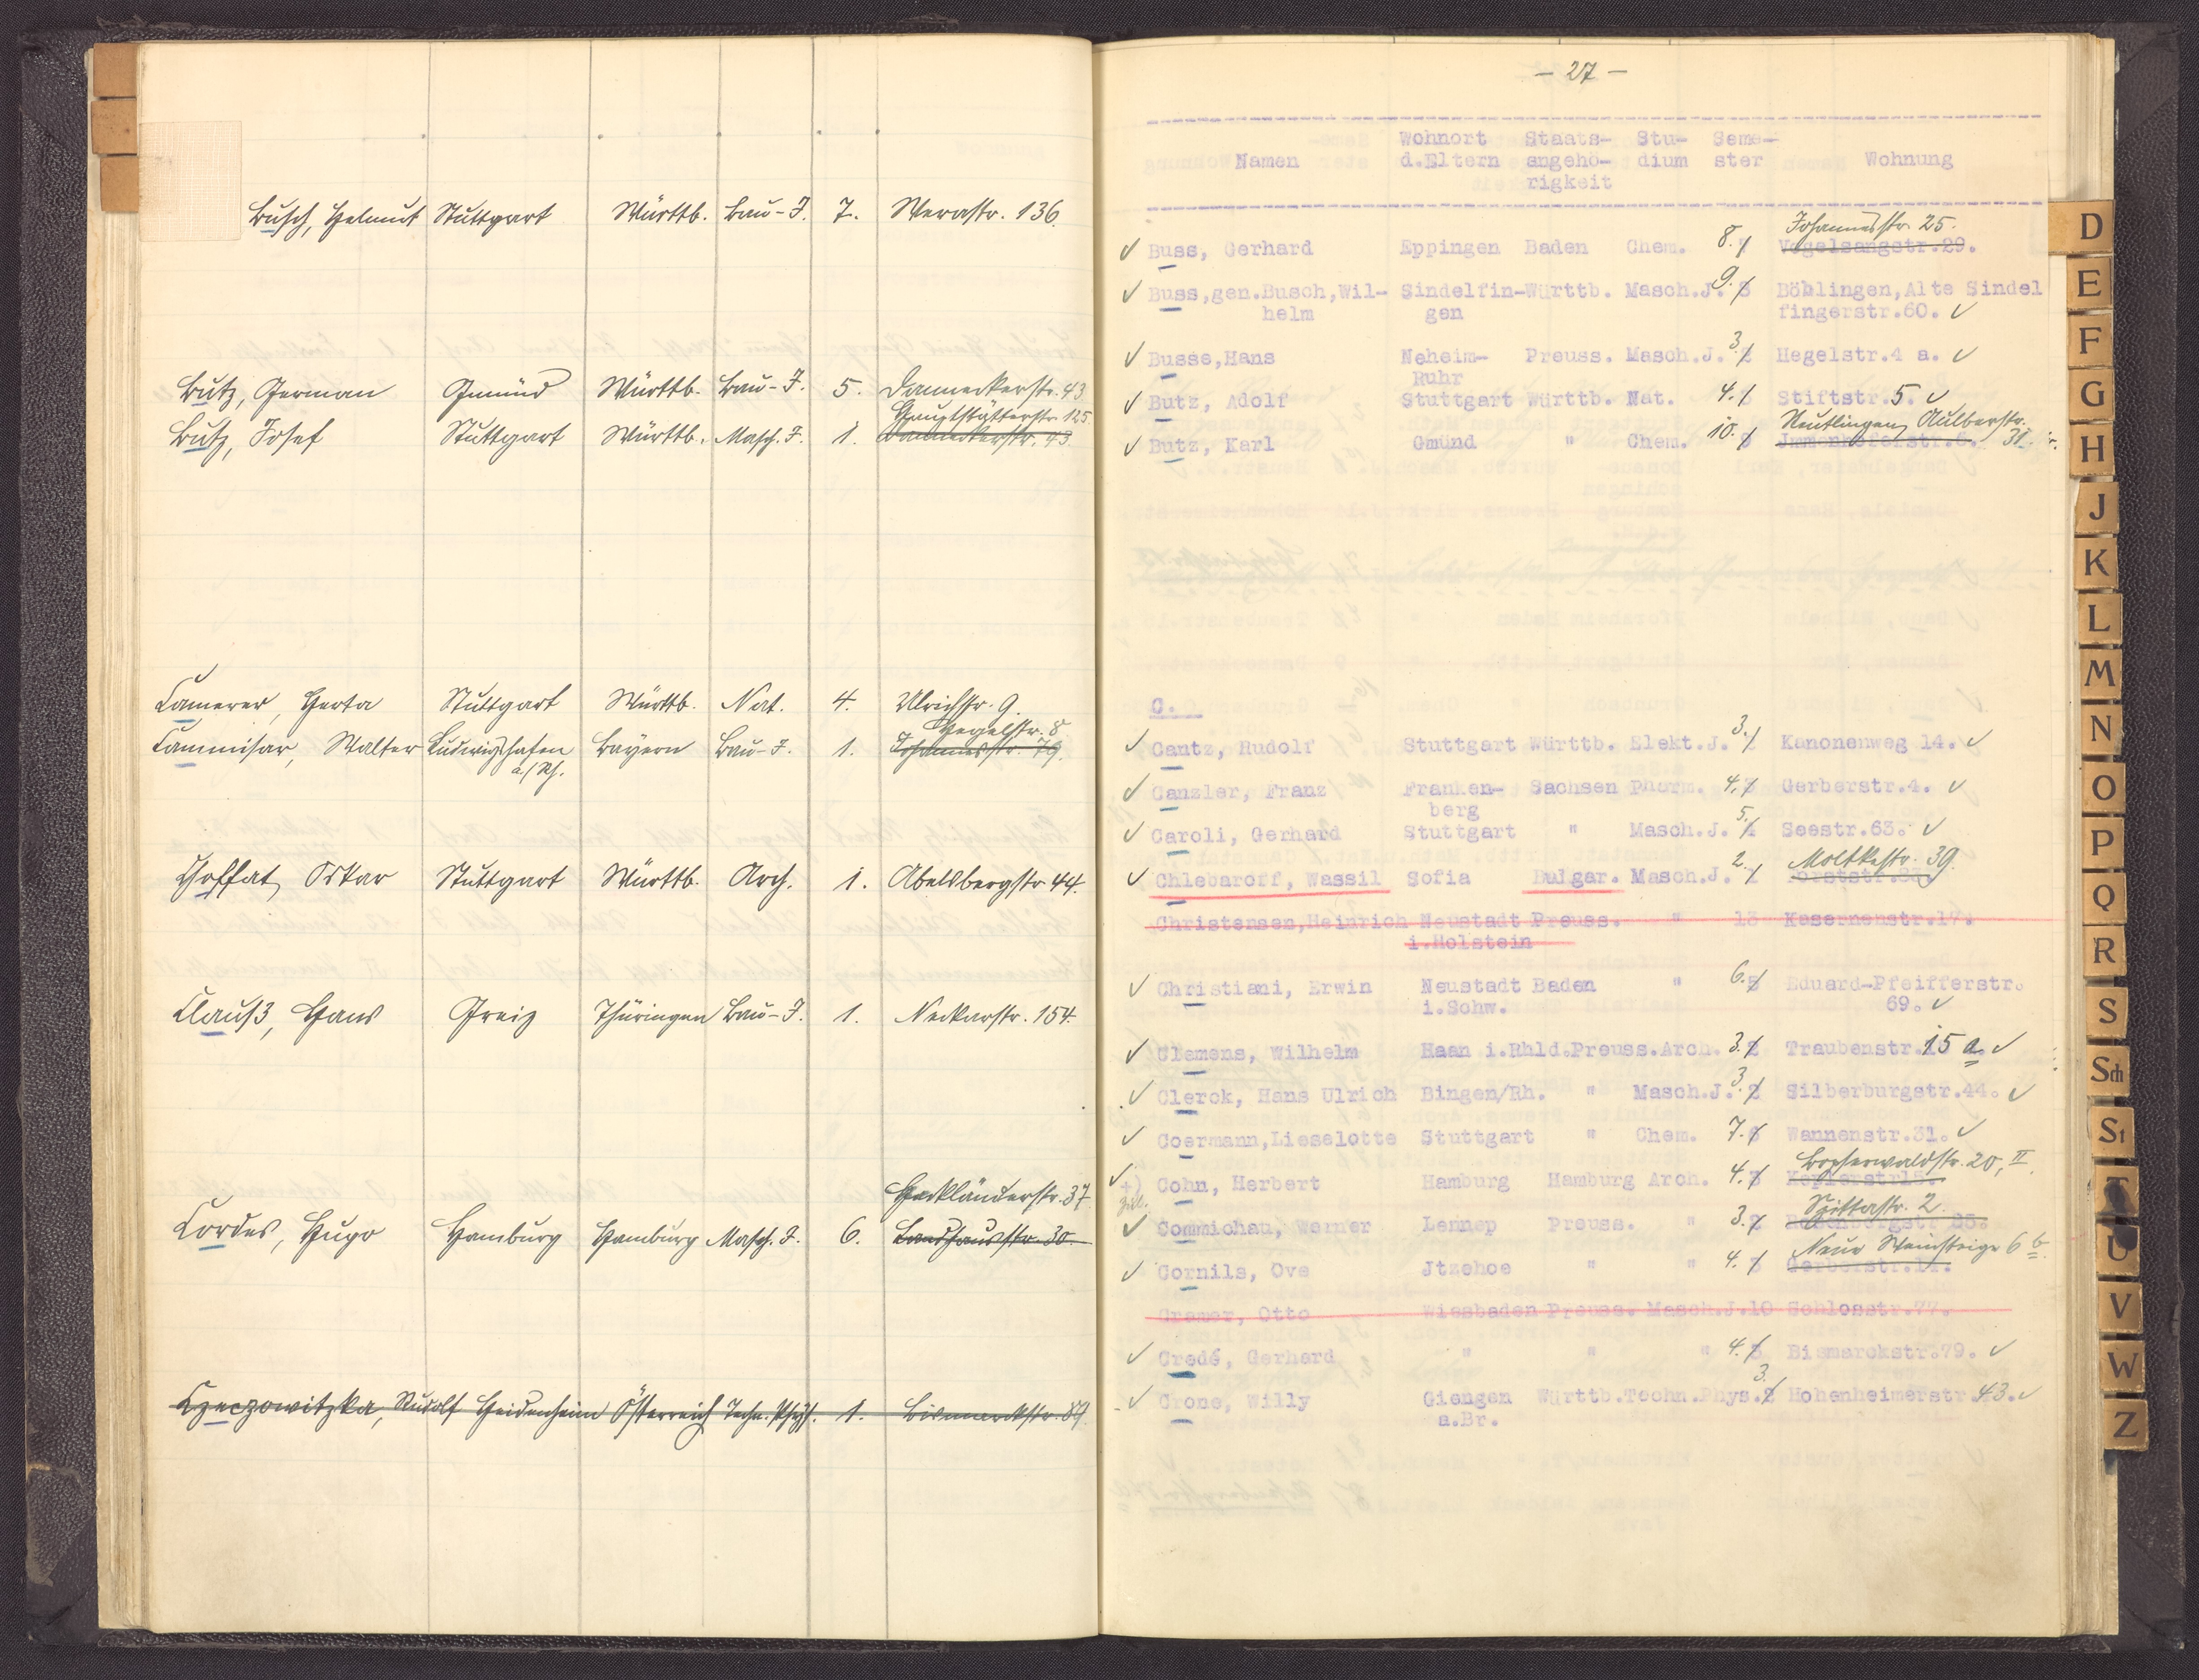 Busch, Helmut Stuttgart Württb. Bau-J. 7. Werastr. 136.
Butz, German Gmünd Württb. Bau-J. 5. Danneckerstr. 43
Hauptstätterstr. 125.
Butz, Josef Stuttgart Württb. Masch. J. 1. Danneckerstr. 43.
Camerer, Herta Stuttgart Württb. Nat. 4. Ulrichstr. 9.
Hegelstr. 8
Cammisar, Walter Ludwigshafen Bayern Bau-J. 1. Johannesstr. 79.
a./Rh.
Choffat, Oskar Stuttgart Württb. Arch. 1. Abelsbergstr. 44.
Clauß, Hans Greiz Thüringen Bau-J. 1. Neckarstr. 154.
Hackländerstr. 37
Cordes, Hugo Hamburg Hamburg Masch. J. 6. Landhausstr. 30.
Czeczowitzka, Rudolf Heidenheim Österreich Techn. Phys. 1. Bismarckstr.
- 27 -
Wohnort Staats- Stu- Seme-
Namen d.Eltern angehö- dium ster Wohnung
rigkeit
Johannesstr. 25.
Buss, Gerhard Eppingen Baden Chem. 8. Vogelsangstr.29.
Buss,gen.Busch,Wil- Sindelfin- Württb. Masch.J. 9. Böblingen,Alte Sindel
helm gen fingerstr.60.
Busse,Hans Neheim- Preuss. Masch.J. 3. Hegelstr.4 a.
Ruhr
Butz, Adolf Stuttgart Württb. Nat. 4. Stiftstr.5.
Reutlingen, Aulberstr.
Butz, Karl Gmünd " Chem. 10. Jmmenhoferstr. 31.
C.
Cantz, Rudolf Stuttgart Württb. Elekt.J. 3. Kanonenweg 14.
Canzler, Franz Franken- Sachsen Pharm. 4. Gerberstr.4.
berg
Caroli, Gerhard Stuttgart " Masch.J. 5. Seestr.63.
Moltkestr. 39.
Chlebaroff, Wassil Sofia Bulgar. Masch.J. 2. Forststr.
Christensen,Heinrich Neustadt Preuss. " 13 Kasernenstr.17.
i.Holstein
Christiani, Erwin Neustadt Baden " 6. Eduard-Pfeifferstr.
i.Schw. 69.
Clemens, Wilhelm Haan i.Rhld.Preuss.Arch. 3. Traubenstr.15 a.
Clerck, Hans Ulrich Bingen/Rh. " Masch.J. 3. Silberburgstr.44.
Coermann,Lieselotte Stuttgart " Chem. 7. Wannenstr.31.
Bopserwaldstr. 20, II.
+) Cohn, Herbert Hamburg Hamburg Arch. 4. Keplerstr.
Spittastr. 2.
Commichau, Werner Lennep Preuss. " 3.
Neue Weinsteige 6 b.
Cornils, Ove Jtzehoe " " 4. Gerberstr.
Cramer, Otto Wiesbaden Preuss. Masch.J.10 Schlosstr.77.
Credé, Gerhard " " " 4. Bismarckstr.79.
Crone, Willy Giengen Württb.Techn.Phys. 3. Hohenheimerstr.43.
a.Br.
D
E
F
G
H
J
K
L
M
N
O
P
Q
R
S
Sch
St
T
U
V
W
Z